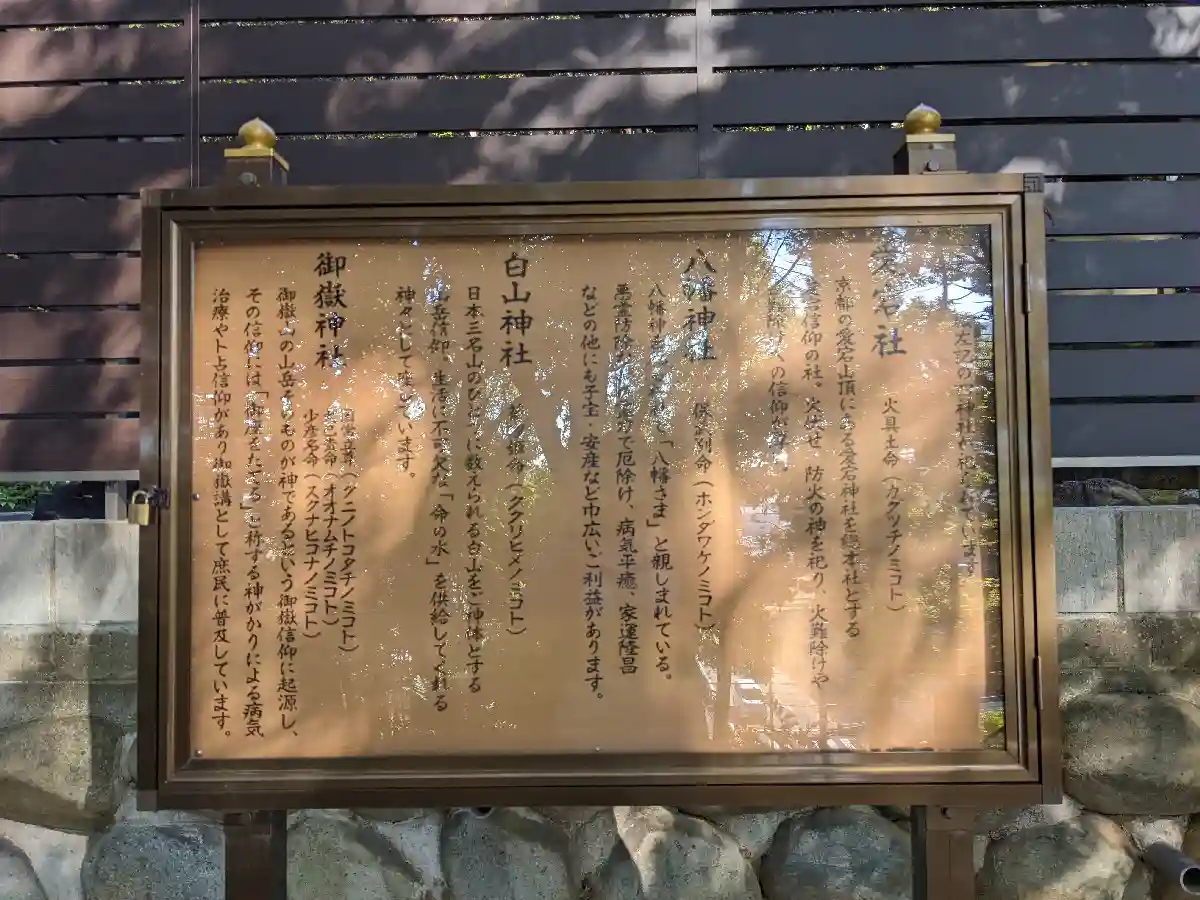 左記の 神社に祀 れています。
愛宕社 火具土命(カグツチノミコト)
京都の愛宕山頂にある愛宕神社を総本社とする
愛宕信仰の社。火伏せ、防火の神を祀り、火難除けや
の信仰
八幡神社 誉田別命(ホンダワケノミコト)
八幡神 「八幡さま」と親しまれている。
悪霊防除 で厄除け、病気平癒、家運隆昌
などの他にも子宝・安産など巾広いご利益があります。
白山神社 (ククリヒメノミコト)
日本三名山のひとつに数えられる白山をご神体とする
山岳信仰、生活に不可欠な「命の水」を供給してくれる
神々として います。
御嶽神社 国常立尊(クニノトコタチノミコト)
(オオナムチノミコト)
少彦名命(スクナヒコナノミコト)
御嶽山の山岳そのものが神であるという御嶽信仰に起源し、
その信仰には「御座をたてる」と称する神がかりによる病気
治療や卜占信仰があり御嶽講として庶民に普及しています。